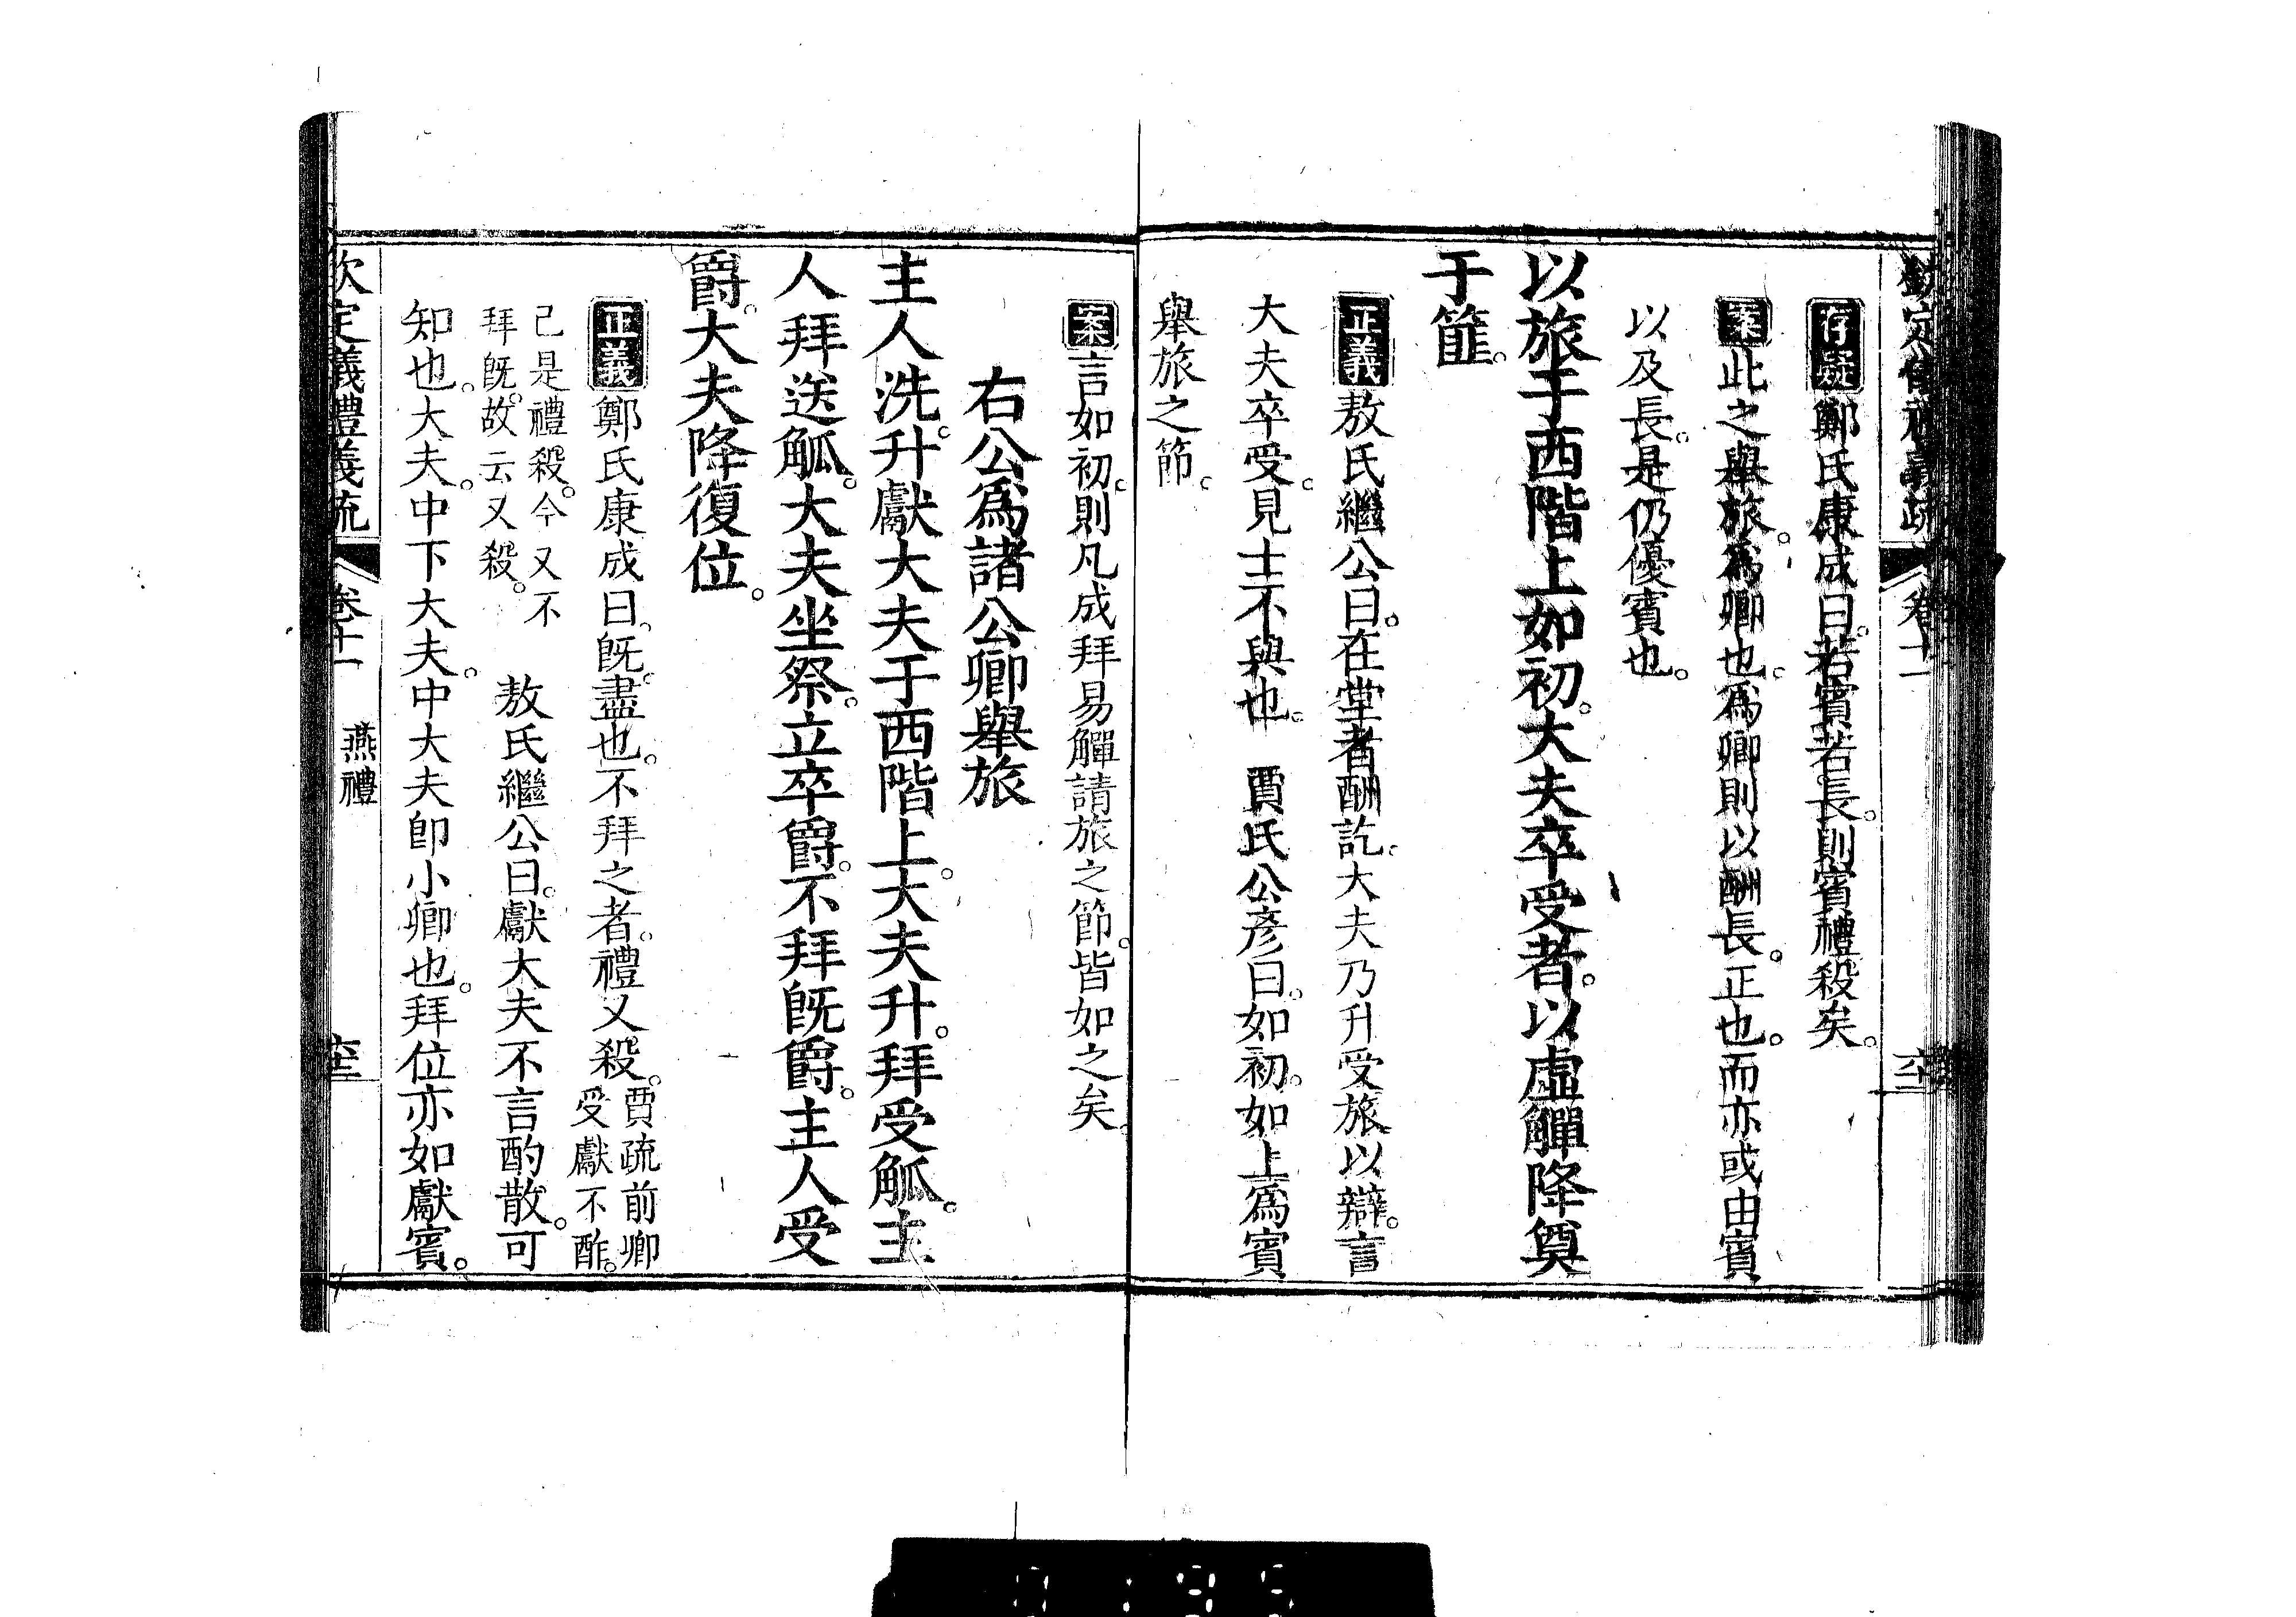 欽定儀禮義疏 卷十一 六二
存疑鄭氏康成曰若賓若長則賓禮殺矣
案此之舉旅爲卿也爲卿則以酬長正也而亦或由賓
以及長是仍優賓也
以旅于西階上如初大夫卒受者以虛觶降奠
于篚
正義敖氏繼公曰在堂者酬訖大夫乃升受旅以辯言
大夫卒受見士不與也 賈氏公彥曰如初如上爲賓
舉旅之節
案言如初則凡成拜易觶請旅之節皆如之矣
右公爲諸公卿舉旅
主人洗升獻大夫于西階上大夫升拜受觚主
人拜送觚大夫坐祭立卒爵不拜旣爵主人受
爵大夫降復位
正義鄭氏康成曰旣盡也不拜之者禮又殺賈疏前卿
受獻不酢
已是禮殺今又不
拜旣故云又殺 敖氏繼公曰獻大夫不言酌散可
知也大夫中下大夫中大夫卽小卿也拜位亦如獻賓
欽定義禮義疏 卷十一 燕禮 六三